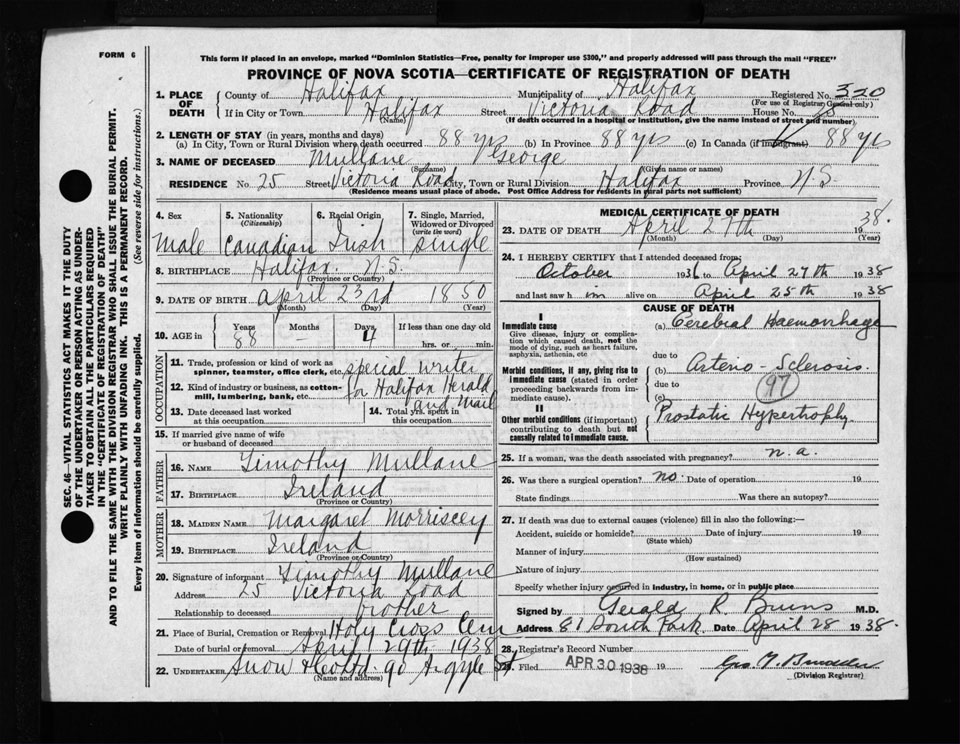 FORM 6
This form if placed in an envelope, marked "Dominion Statistics—Free, penalty for improper use $300," and properly addressed will pass through the mail "FREE"
PROVINCE OF NOVA SCOTIA—CERTIFICATE OF REGISTRATION OF DEATH
1. PLACE OF DEATH County of Halifax Municipality of Halifax Registered No. 320
(For use of Registrar General only)
If in City or Town Halifax Street Victoria Road House No.
(Name) (If death occurred in a hospital or institution, give the name instead of street and number)
2. LENGTH OF STAY (in years, months and days)
(a) In City, Town or Rural Division where death occurred 88 yrs (b) In Province 88 yrs (c) In Canada (if immigrant) 88 yrs
3. NAME OF DECEASED Mullane George
(Surname) (Given name or names)
RESIDENCE No. 25 Street Victoria Road City, Town or Rural Division Halifax Province N.S.
(Residence means usual place of abode. Post Office Address for residents in rural parts not sufficient)
4. Sex 5. Nationality (Citizenship) 6. Racial Origin 7. Single, Married, Widowed or Divorced (write the word)
Male Canadian Irish single
8. BIRTHPLACE Halifax. N.S.
(Province or Country)
9. DATE OF BIRTH April 23rd 1850
(Month) (Day) (Year)
10. AGE in Years Months Days If less than one day old
88 — 4 hrs. or min.
OCCUPATION
11. Trade, profession or kind of work as spinner, teamster, office clerk, etc. special writer
12. Kind of industry or business, as cotton-mill, lumbering, bank, etc. for Halifax Herald and Mail
13. Date deceased last worked at this occupation 14. Total yrs. spent in this occupation
15. If married give name of wife or husband of deceased
FATHER
16. NAME Timothy Mullane
17. BIRTHPLACE Ireland
(Province or Country)
MOTHER
18. MAIDEN NAME Margaret Morriscey
19. BIRTHPLACE Ireland
(Province or Country)
20. Signature of informant Timothy Mullane
Address 25 Victoria Road
Relationship to deceased brother
21. Place of Burial, Cremation or Removal Holy Cross Cem
Date of burial or removal April 29th 1938
22. UNDERTAKER Snow & Co Ltd. 90 Argyle St.
(Name and address)
MEDICAL CERTIFICATE OF DEATH
23. DATE OF DEATH April 27th 1938.
(Month) (Day) (Year)
24. I HEREBY CERTIFY that I attended deceased from:
October 1936 to April 27th 1938
and last saw him alive on April 25th 1938
CAUSE OF DEATH
I
Immediate cause
Give disease, injury or complication which caused death, not the mode of dying, such as heart failure, asphyxia, asthenia, etc
(a) Cerebral Haemorrhage
due to
Morbid conditions, if any, giving rise to immediate cause (stated in order proceeding backwards from immediate cause).
(b) Arterio-Sclerosis.
due to
(c)
97
II
Other morbid conditions (if important) contributing to death but not causally related to immediate cause.
Prostatic Hypertrophy.
25. If a woman, was the death associated with pregnancy? n.a.
26. Was there a surgical operation? no. Date of operation 19
State findings Was there an autopsy?
27. If death was due to external causes (violence) fill in also the following:—
Accident, suicide or homicide? Date of injury 19
(State which)
Manner of injury
(How sustained)
Nature of injury
Specify whether injury occurred in industry, in home, or in public place
Signed by Gerald R. Burns M.D.
Address 81 South Park. Date April 28 1938.
28. Registrar's Record Number
29. Filed APR 30 1938 19
(Division Registrar)
SEC. 46—VITAL STATISTICS ACT MAKES IT THE DUTY OF THE UNDERTAKER OR PERSON ACTING AS UNDERTAKER TO OBTAIN ALL THE PARTICULARS REQUIRED IN THE "CERTIFICATE OF REGISTRATION OF DEATH" AND TO FILE THE SAME WITH THE DIVISION REGISTRAR WHO SHALL ISSUE THE BURIAL PERMIT.
WRITE PLAINLY WITH UNFADING INK. THIS IS A PERMANENT RECORD.
Every item of information should be carefully supplied. (See reverse side for instructions.)